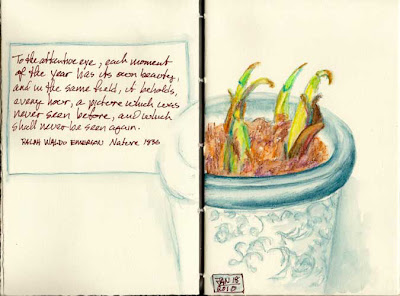 To the attentive eye, each moment
of the year has its own beauty,
and in the same field, it beholds,
every hour, a picture which was
never seen before, and which
shall never be seen again.
RALPH WALDO EMERSON Nature 1836
JAN 18
2010